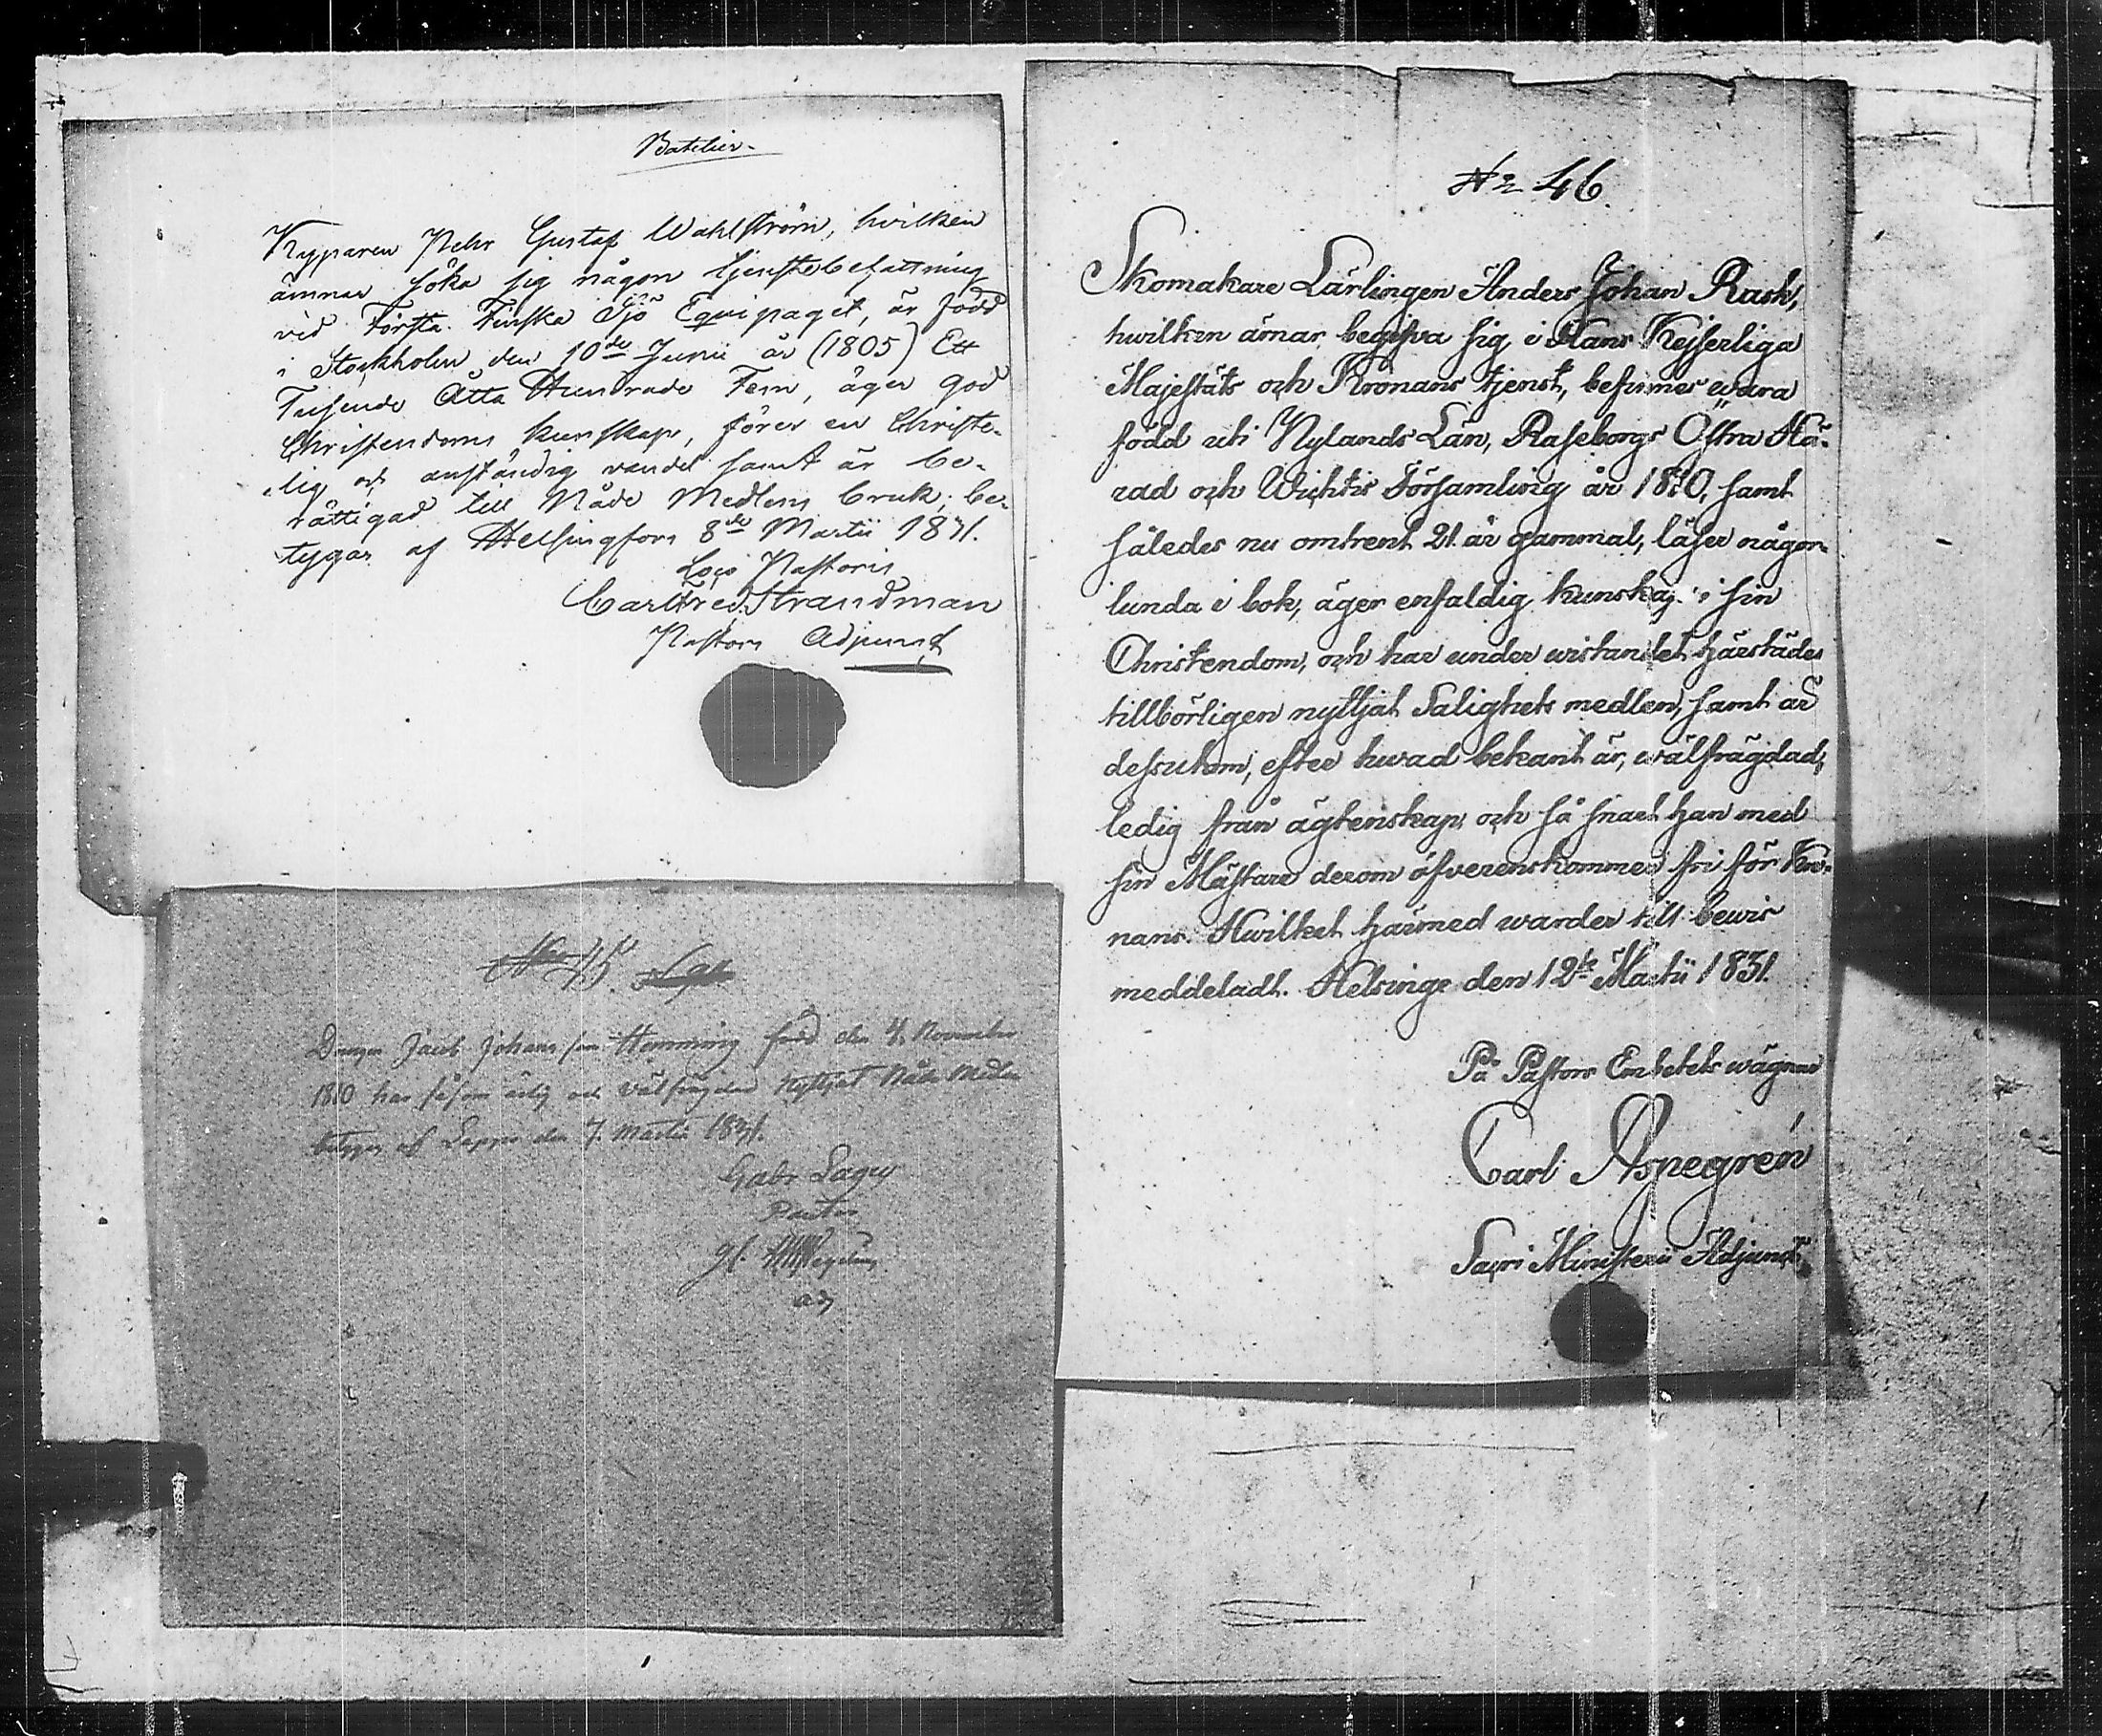 Kyparen Pehr Gustaf Wahlström, hvilken
ämnar söka sig någon tjenstebefattning
vid Första Finska Sjö Equipaget, är född
i Stockholm den 10de Junii år (1805) Ett
Tusende Åtta Hundrade Fem, äger god
Christendoms kunskap, förer en Christe-
lig och anständig vandel samt är be-
rättigad till Nåde Medlens bruk; be-
tygar af Helsingfors 8de Martii 1831.
Loco Pastoris
Carl Fred. Strandman
Pastors Adjunct
No 45.
Drengen Jacob Johansson Hemming född den 4. November
1810 har såsom ärlig och välfrägdad nyttjat Nåde Medlen
betygar af Lappo den 7. Martii 1831.
Gabr Lagus
Pastor
adj
No 46.
Skomakare Lärlingen Anders Johan Rask,
hwilken ämar begifva sig i Hans Kejserliga
Majestäts och Kronans tjenst, befinnes wara
född uti Nylands Län, Raseborgs Östra Hä-
rad och Wichtis Församling år 1810, samt
således nu omtrent 21 år gammal, läser någor-
lunda i bok, äger enfaldig kunskap i sin
Christendom, och har under wistandet härstädes
tillbörligen nyttjat Salighets medlen, samt är
dessutom, efter hwad bekant är, wälfrägdad,
ledig från ägtenskap, och så snart han med
sin Mästare derom öfverenskommer fri för Kro-
nans. Hwilket härmed warder till bewis
meddeladt. Helsinge den 12te Martii 1831.
På Pastors Embetets wägnar
Carl Aspegrén
Sacri Ministerii Adjunct.